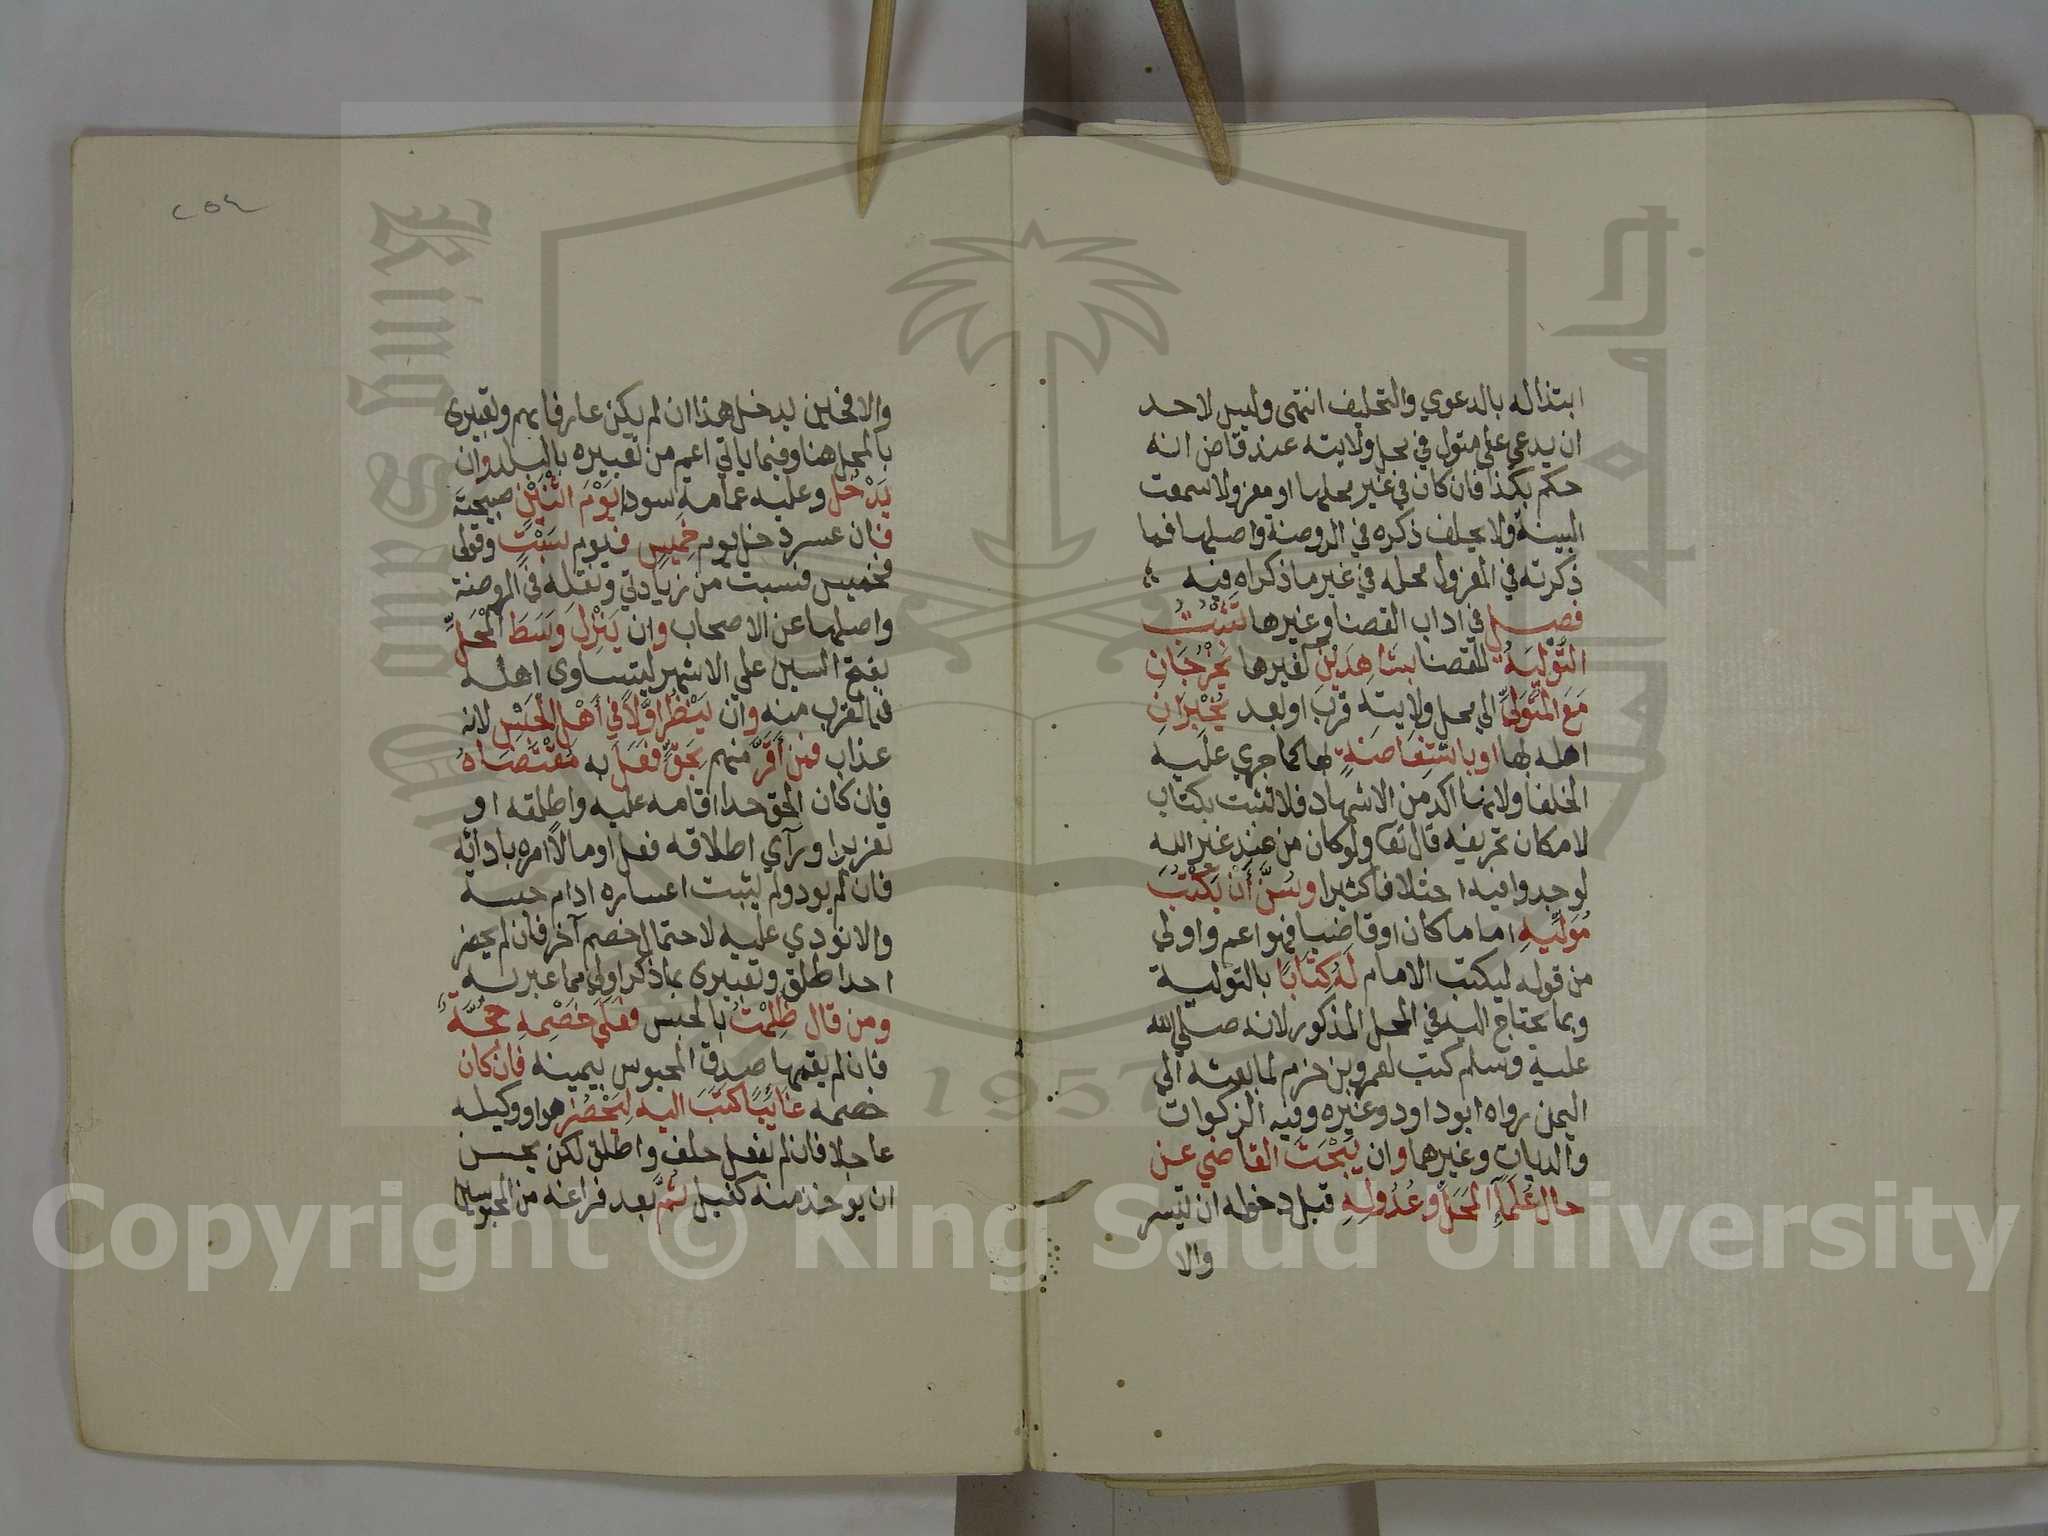 ابتذاله بالدعوي والتحليف انتهى وليس لاحد
ان يدعي على متول في محل ولايته عند قاض انه
حكم بكذا فان كان في غير محلها او معزولا سمعت
البينة ولا يحلف ذكره في الروضة واصلها فما
ذكرته في المعزول محله في غير ما ذكراه فيه
فصل في اداب القضا وغيرها تَثْبُتُ
التَّوْلِيَةُ للقضا بِشَاهِدَيْنِ كغيرها يَخْرُجَانِ
مَعَ الْمُتَوَلِّي الي محل ولايته قرب او بعد يُخْبِرَانِ
اهله بها اوباسْتِفَاضَةٍ لها كما جري عليه
الخلفا ولانها اكد من الاشهاد فلا تثبت بكتاب
لامكان تحريفه قال تعا ولو كان من عند غير الله
لوجدوا فيه اختلافا كثيرا وسُنَّ أَنْ يَكْتُبَ
مُوَلِّيهِ اماما كان او قاضيا فهو اعم واولي
من قوله ليكتب الامام لَهُ كِتَابًا بالتولية
وبما يحتاج اليه في المحل المذكور لانه صلي الله
عليه وسلم كتب لعمرو بن حزم لما بعثه الي
اليمن رواه ابو داود وغيره وفيه الزكوات
والديات وغيرها وان يَبْحَثَ القاضي عن
حال عُلَمَآءِ الْمَحَلِّ وعُدُولِهِ قبل دخوله ان تيسر
والا
٢٥٤
والا فحين يدخل هذا ان لم يكن عارفا بهم وتعبيري
بالمحل هنا وفيما ياتي اعم من تعبيره بالبلد وان
يَدْخُلَ وعليه عمامة سودا يَوْمَ اثْنَيْنِ صبيحته
فان عسر دخل يوم خَمِيسٍ فيوم سَبْتٍ وقولي
فخميس فسبت من زيادتي ونقله في الروضة
واصلها عن الاصحاب وان يَنْزِلَ وَسَطَ الْمَحَلِّ
بفتح السين علي الاشهر ليتساوي اهله
في القرب منه وان يَنْظُرَ اوَّلاً في أَهْلِ الْحَبْسِ لانه
عذاب فمن أَقَرَّ منهم بِحَقٍّ فَعَلَ به مُقْتَضَاهُ
فان كان الحق حدا اقامه عليه واطلقه او
تعزيرا ورآي اطلاقه فعل او مالا امره بادائه
فان لم يود ولم يثبت اعساره ادام حبسه
والا نودي عليه لاحتمال خصم آخر فان لم يحضر
احد اطلق وتعبيري بما ذكر اولي مما عبر به
ومن قال ظُلِمْتُ بالحبس فعَلَي خَصْمِهِ حُجَّةٌ
فان لم يقمها صدق المحبوس بيمينه فان كان
خصمه غَائِبًا كتَبَ اليه لِيَحْضُرَ هو او وكيله
عاجلا فان لم يفعل حلف واطلق لكن يحسن
ان يوخذ منه كفيل ثمَّ بعد فراغه من المحبوسين
Copyright © King Saud University
1957